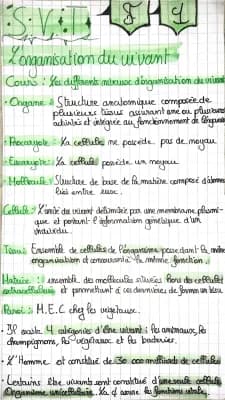 S.V.T
L'organisation du vivant
Cours : Les différents niveaux d'organisation du vivant
- Organe : Structure anatomique composée de
plusieurs tissus assurant une ou plusieurs
activités et intégrée au fonctionnement de l'organisme
- Procaryote : La cellule ne possède pas de noyau
- Eucaryote : La cellule possède un noyau
- Molécule : Structure de base de la matière composé d'atomes
liés entre eux.
Cellule : L'unité du vivant délimitée par une membrane plasmi-
que et portant l'information génétique d'un
individu.
Tissu : Ensemble de cellules de l'organisme possédant la même
organisation et concourant à la même fonction.
Matrice : ensemble des molécules situées hors des cellules
extracellulaire et permettant à ces dernières de former un tissu
Paroi : M.E.C chez les végétaux.
• Il existe 4 catégories d'être vivant : les animaux, les
champignons, les végétaux et les bactéries.
• L'Homme est constitué de 30 000 milliards de cellules
• Certains être vivants sont constitué d'une seule cellule
Organisme unicellulaire. les fonctions vitales.